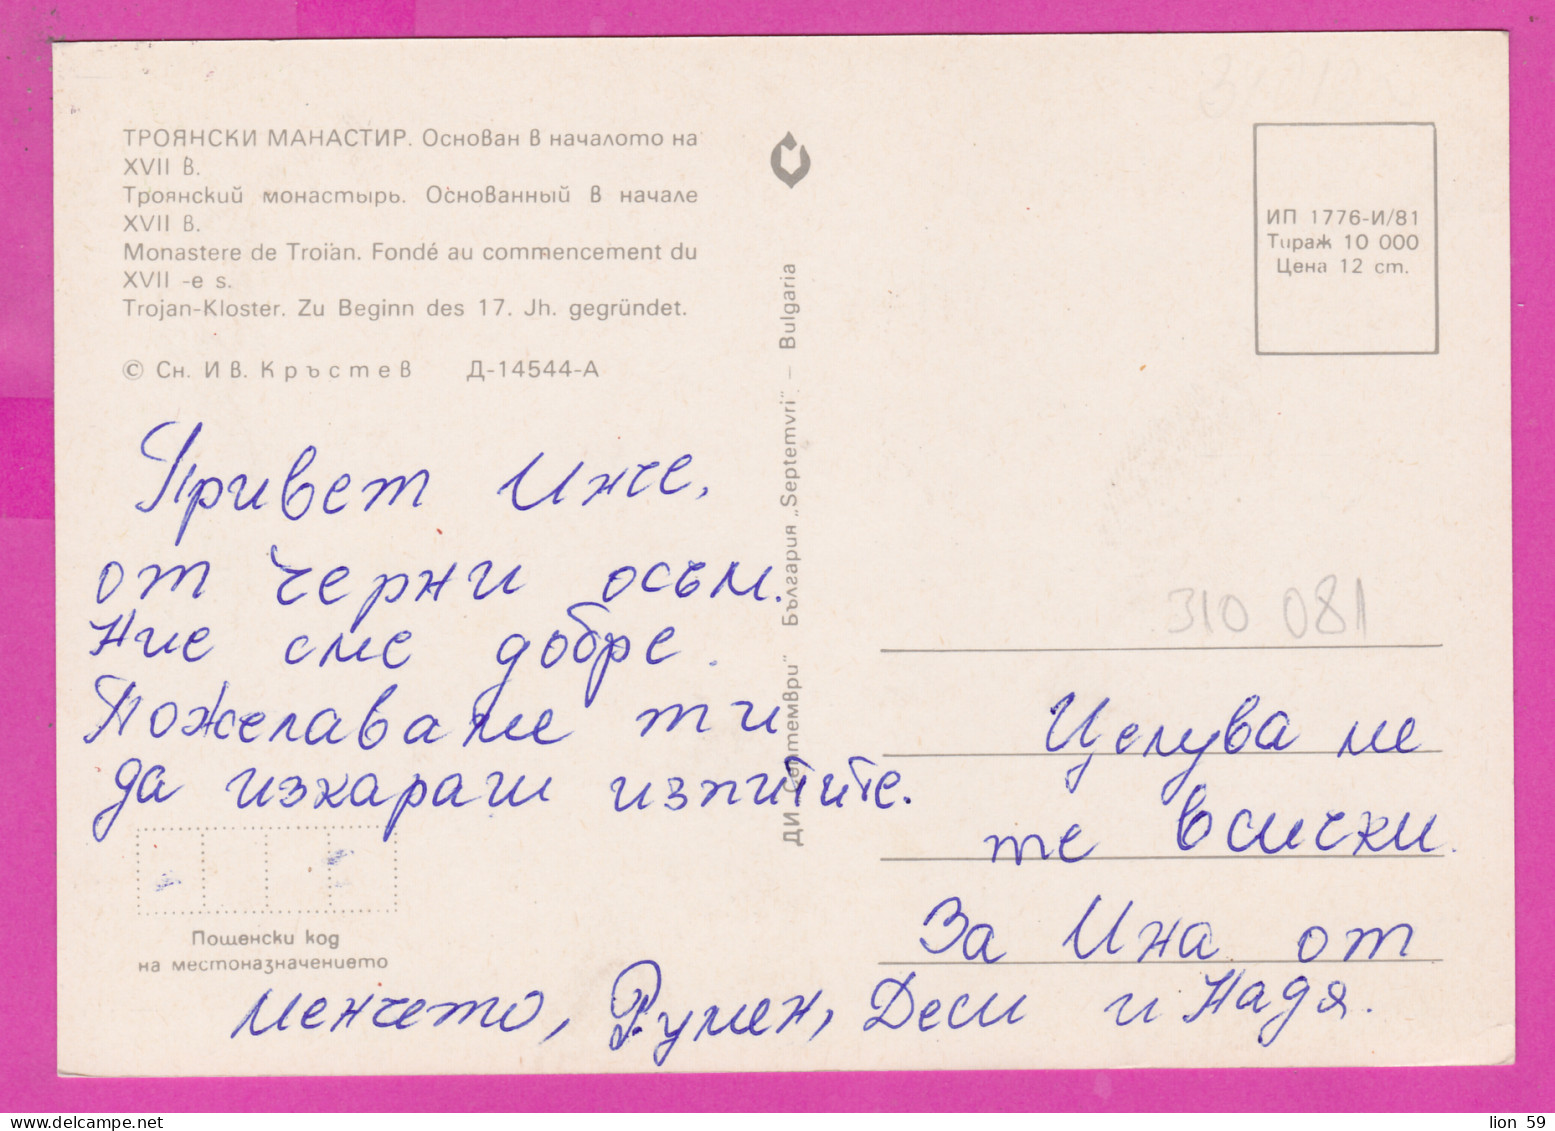 ТРОЯНСКИ МАНАСТИР. Основан в началото на
XVII в.
Троянский монастырь. Основанный в начале
XVII в.
Monastere de Troïan. Fondé au commencement du
XVII -e s.
Trojan-Kloster. Zu Beginn des 17. Jh. gegründet.
© Сн. Ив. Кръстев Д-14544-А
Привет Инче,
от Черни осъм.
Ние сме добре.
Пожелаваме ти
да изкараш изпитите.
Пощенски код
на местоназначението
ДИ „Септември" България „Septemvri". – Bulgaria
ИП 1776-И/81
Тираж 10 000
Цена 12 ст.
310 081
Целува ме
те всички.
За Ина от
Менчето, Румен, Деси и Надя.
lion 59